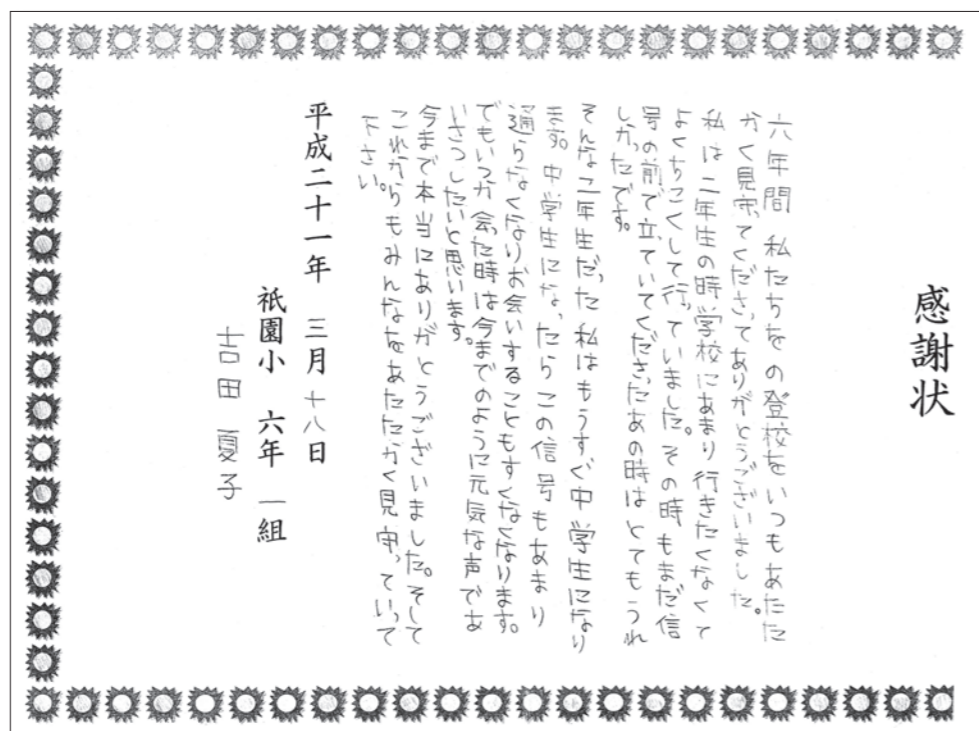 感謝状
六年間 私たちをの登校をいつもあたた
かく見守ってくださってありがとうございました。
私は二年生の時学校にあまり行きたくなくて
よくちこくして行っていました。その時もまだ信
号の前で立っていてくださったあの時はとてもうれ
しかったです。
そんな二年生だった私はもうすぐ中学生になり
ます。中学生になったらこの信号もあまり
通らなくなりお会いすることもすくなくなります。
でもいつか会った時は今までのように元気な声であ
いさつしたいと思います。
今まで本当にありがとうございました。そして
これからもみんなをあたたかく見守っていって
下さい。
平成二十一年 三月十八日
祇園小 六年 一組
吉田 夏子